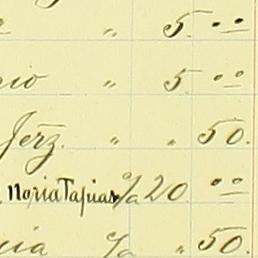 " 5 "
cio " 5 "
Jerz. " " 50.
Noria Tapias % 20 "
cia % " 50.